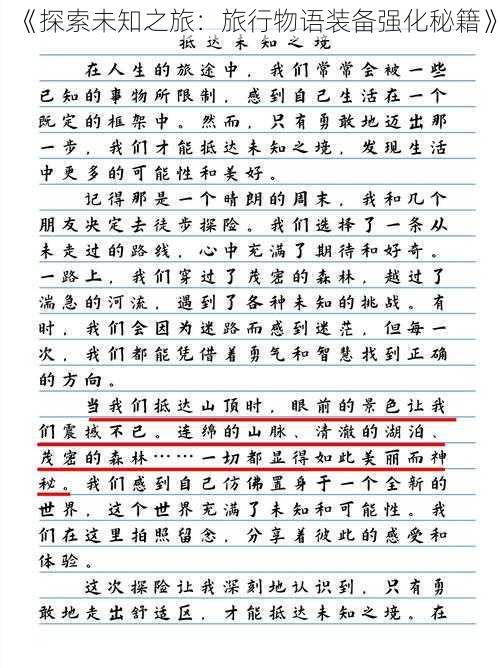 《探索未知之旅：旅行物语装备强化秘籍》
抵达未知之境
在人生的旅途中，我们常常会被一些
已知的事物所限制，感到自己生活在一个
既定的框架中。然而，只有勇敢地迈出那
一步，我们才能抵达未知之境，发现生活
中更多的可能性和美好。
记得那是一个晴朗的周末，我和几个
朋友决定去徒步探险。我们选择了一条从
未走过的路线，心中充满了期待和好奇。
一路上，我们穿过了茂密的森林，越过了
湍急的河流，遇到了各种未知的挑战。有
时，我们会因为迷路而感到迷茫，但每一
次，我们都能凭借着勇气和智慧找到正确
的方向。
当我们抵达山顶时，眼前的景色让我
们震撼不已。连绵的山脉、清澈的湖泊、
茂密的森林……一切都显得如此美丽而神
秘。我们感到自己仿佛置身于一个全新的
世界，这个世界充满了未知和可能性。我
们在这里拍照留念，分享着彼此的感受和
体验。
这次探险让我深刻地认识到，只有勇
敢地走出舒适区，才能抵达未知之境。在